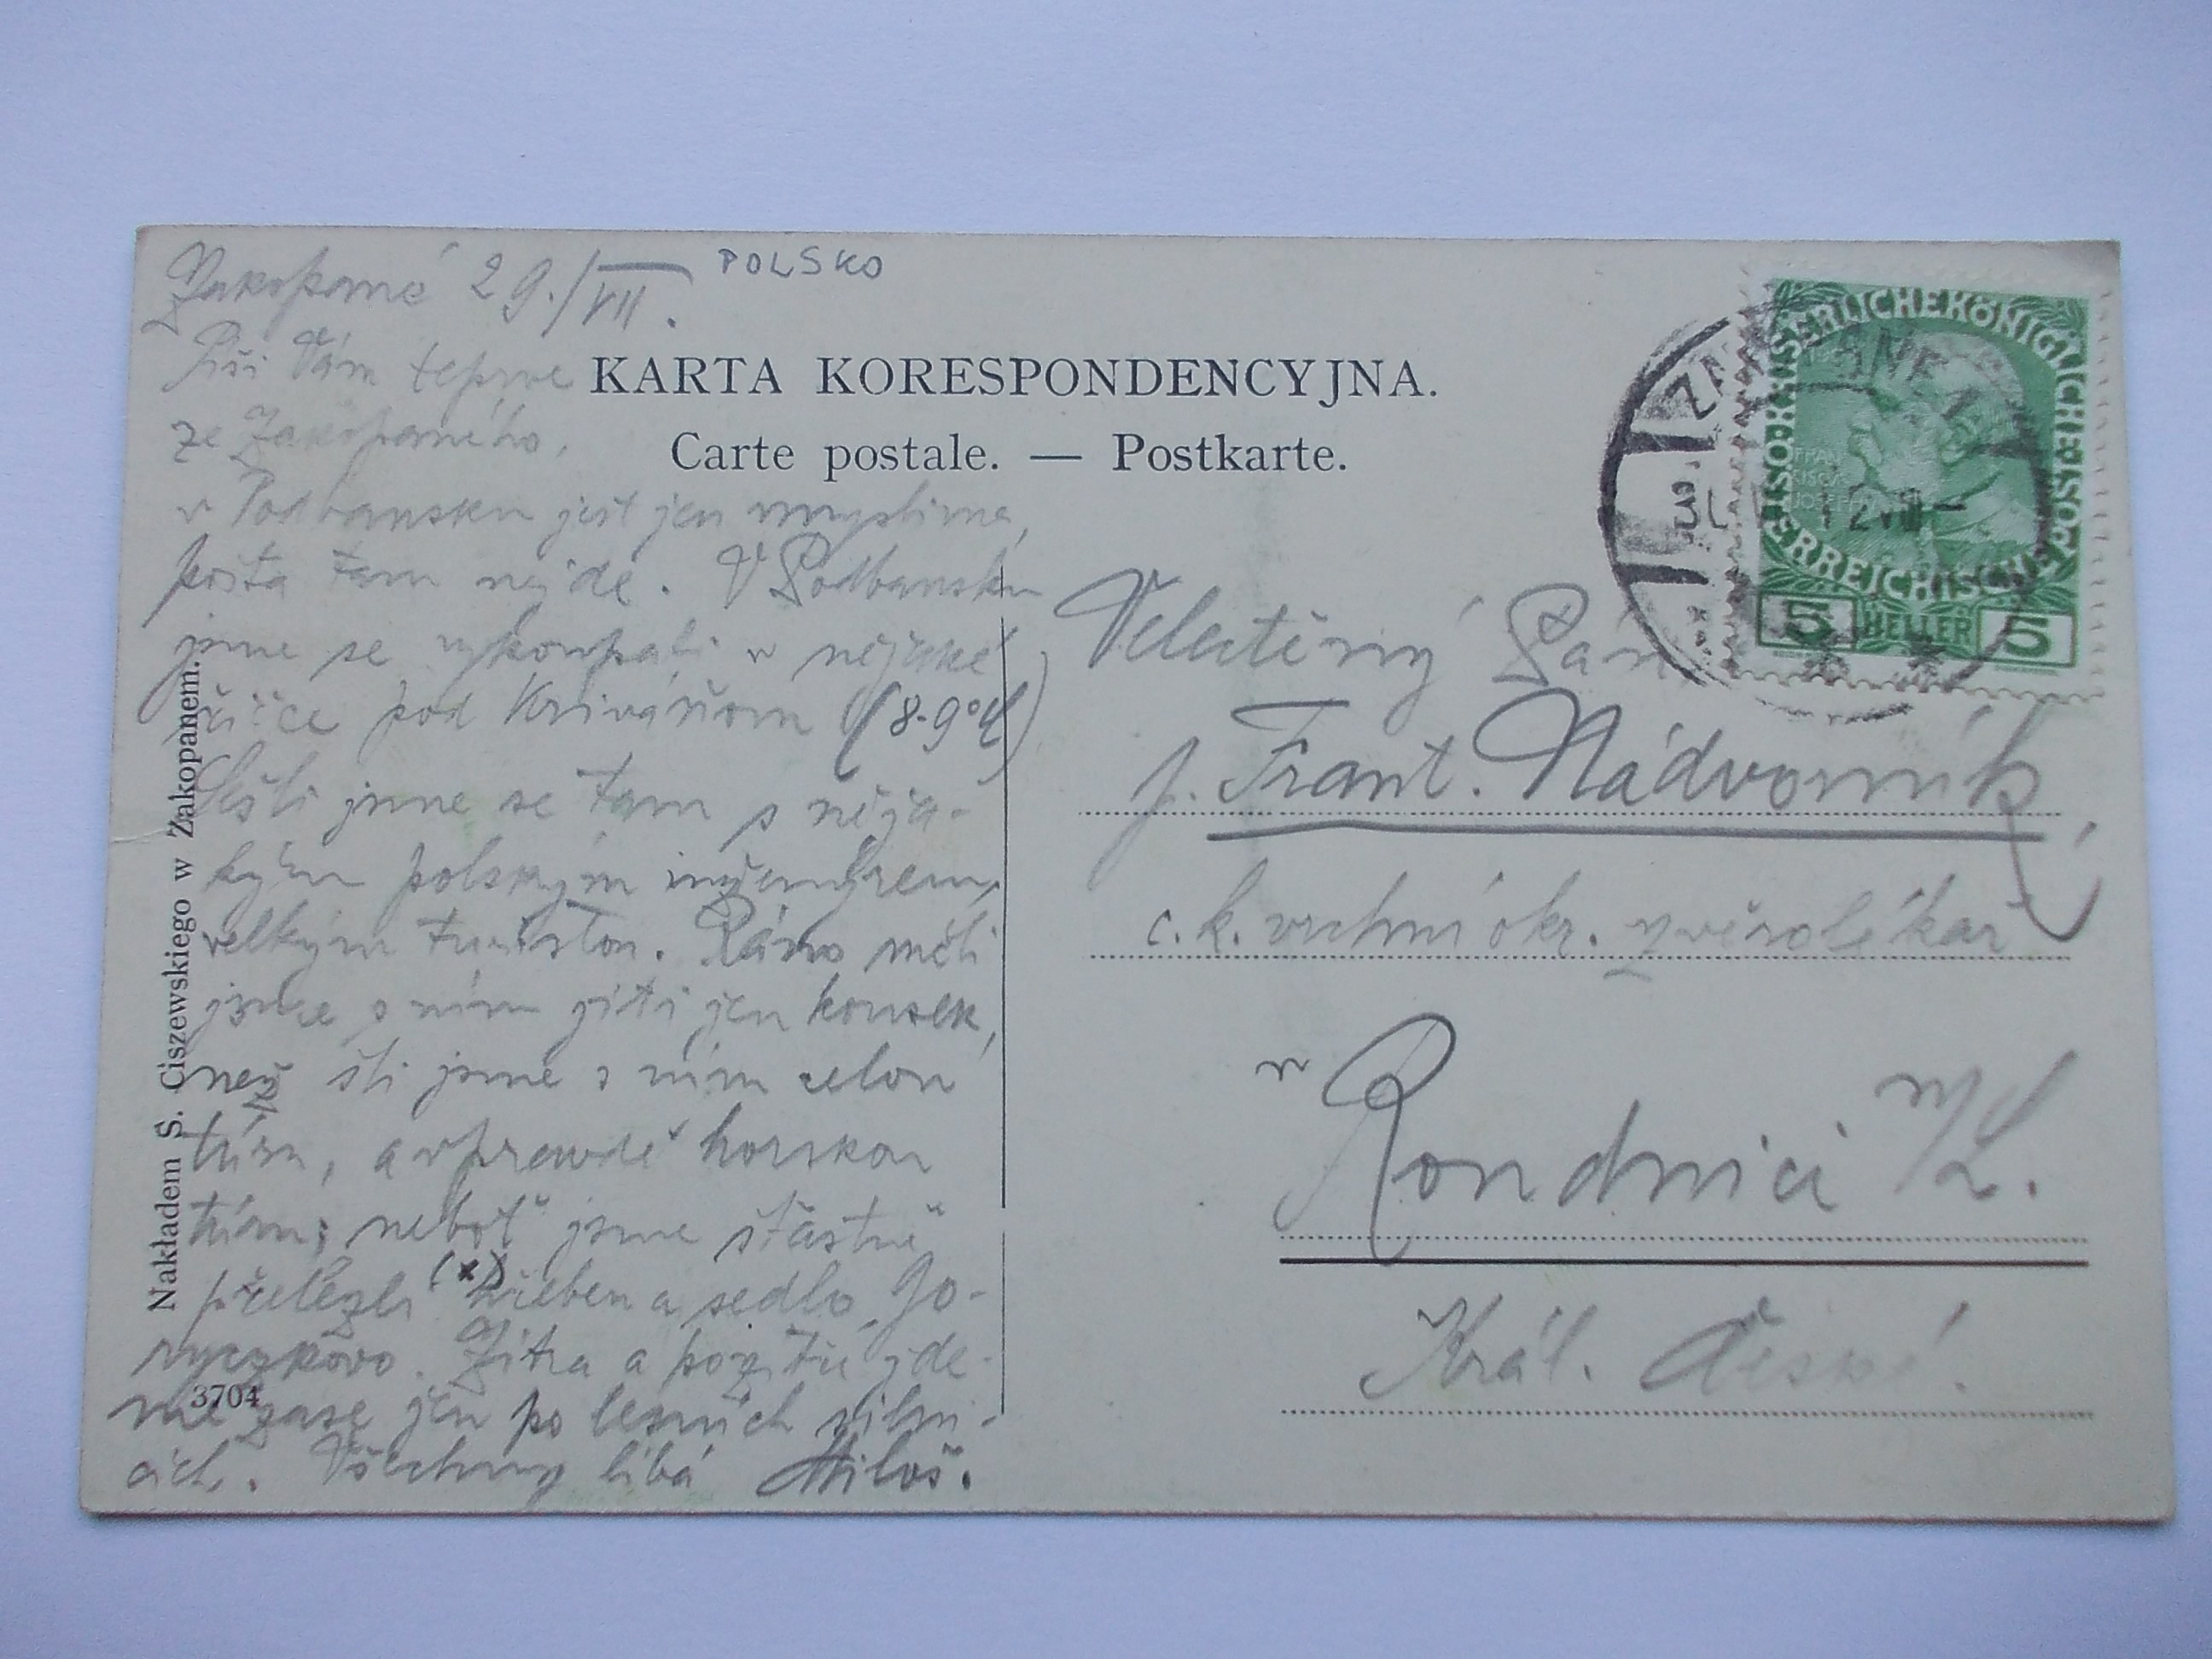 Zakopané 29./VII.
POLSKO
Píši Vám teprve
ze Zakopaného,
v Podbansku jest jen myslivna,
pošta tam nejde. V Podbansku
jsme se vykoupali v nějaké
říčce pod Kriváňom (8-9°C)
Sešli jsme se tam s něja-
kým polským inženýrem,
velkým turistou. Ráno měli
jsme s ním jíti jen kousek,
než šli jsme s ním celou
túru, a vpravdě horskou
túru, neboť jsme šťastně
přelezli (x) hřeben a sedlo Go-
ryczkovo. Zítra a pozítří jde-
me zase jen po lesních silni-
cích. Všechny líbá Miloš.
KARTA KORESPONDENCYJNA.
Carte postale. — Postkarte.
Nakładem S. Ciszewskiego w Zakopanem.
3704
KAISERLICHE KÖNIGLICHE ÖSTERREICHISCHE POST
5 HELLER 5
ZAKOPANE 1
31. VII 12
Velectěný Pán
p. Frant. Nádvorník
c. k. vrchní okr. zvěrolékař
v Roudnici n/L.
Král. České.